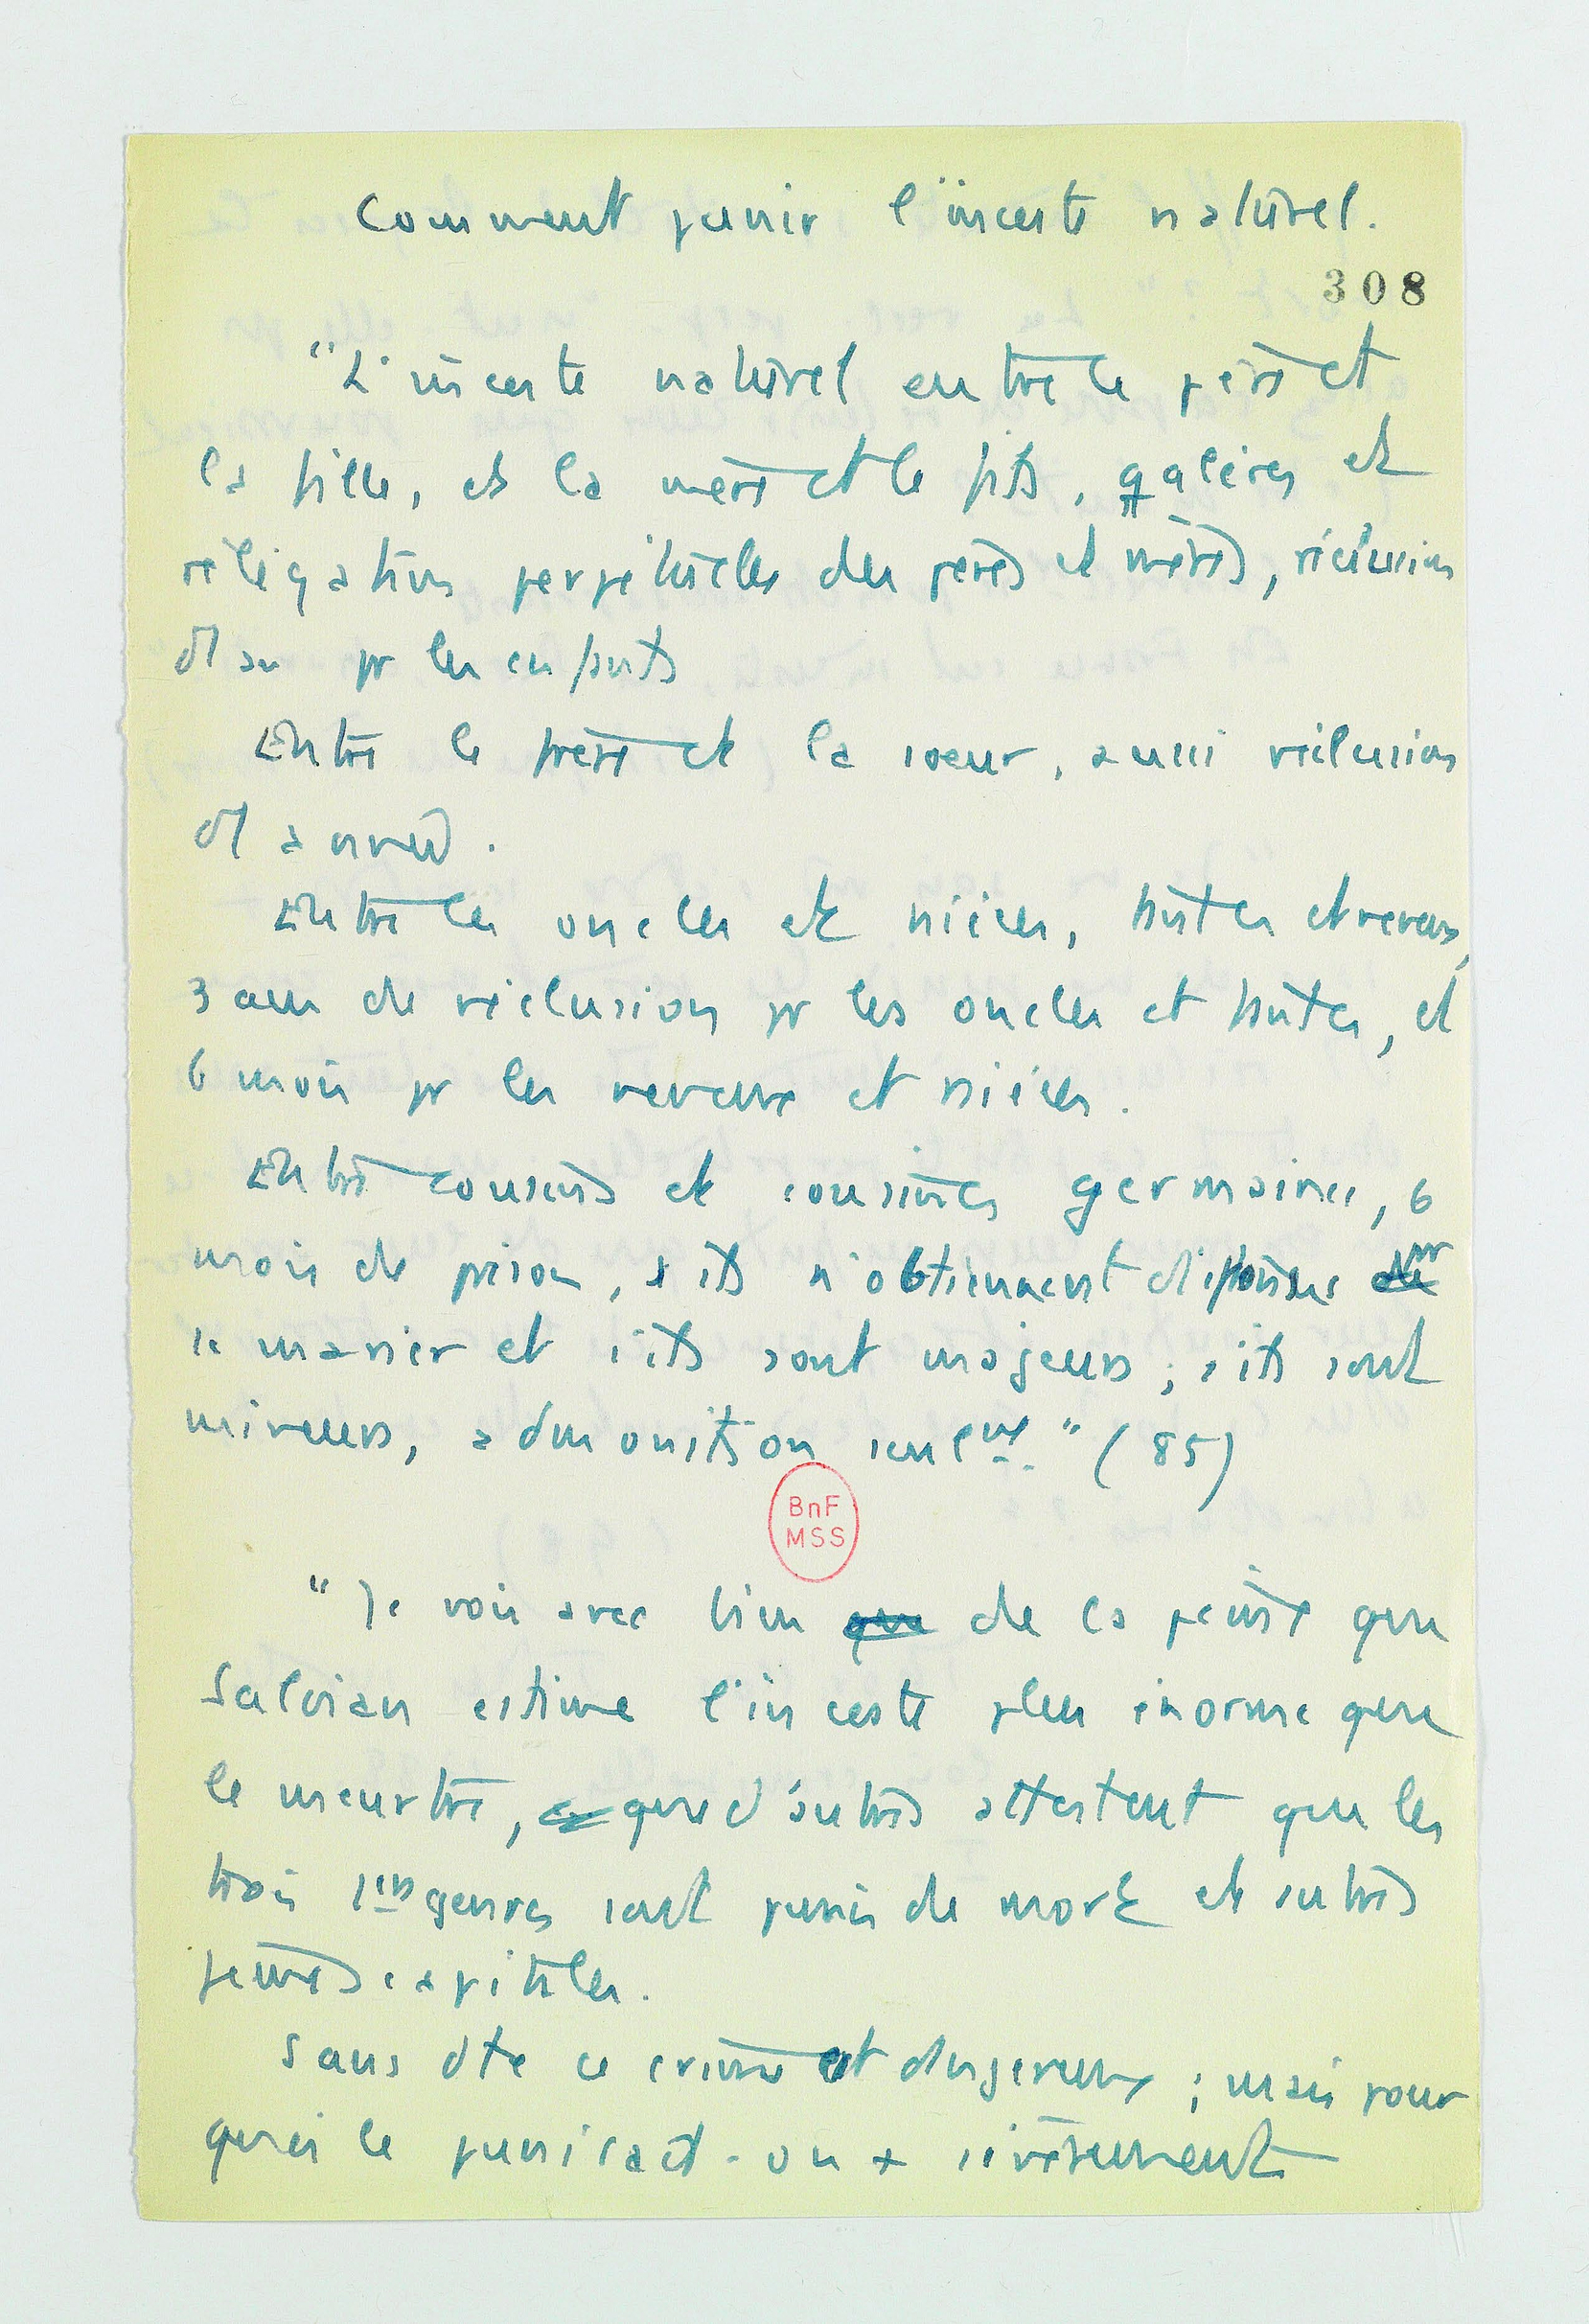 Comment punir l'inceste naturel.
308
"L'inceste naturel entre le père et
la fille, et la mère et le fils, galères et
rélégation perpétuelles des pères et mères, réclusion
d'1 an pr les enfants
Entre le frère et la soeur, aussi réclusion
d'1 année.
Entre les oncles et nièces, tantes et neveux,
3 ans de réclusion pr les oncles et tantes, et
6 mois pr les neveux et nièces.
Entre cousins et cousines germaines, 6
mois de prison, s'ils n'obtiennent dispense de pr
se marier et s'ils sont majeurs ; s'ils sont
mineurs, admonition seulmt." (85)
BnF
MSS
"Je vois avec bien que de la peine que
Salvian estime l'inceste plus énorme que
le meurtre, que d'autres attestent que les
trois 1ers genres sont punis de mort et autres
peines capitales.
Sans dte ce crime est dangereux ; mais pour
quoi le punirait-on + sévèrement